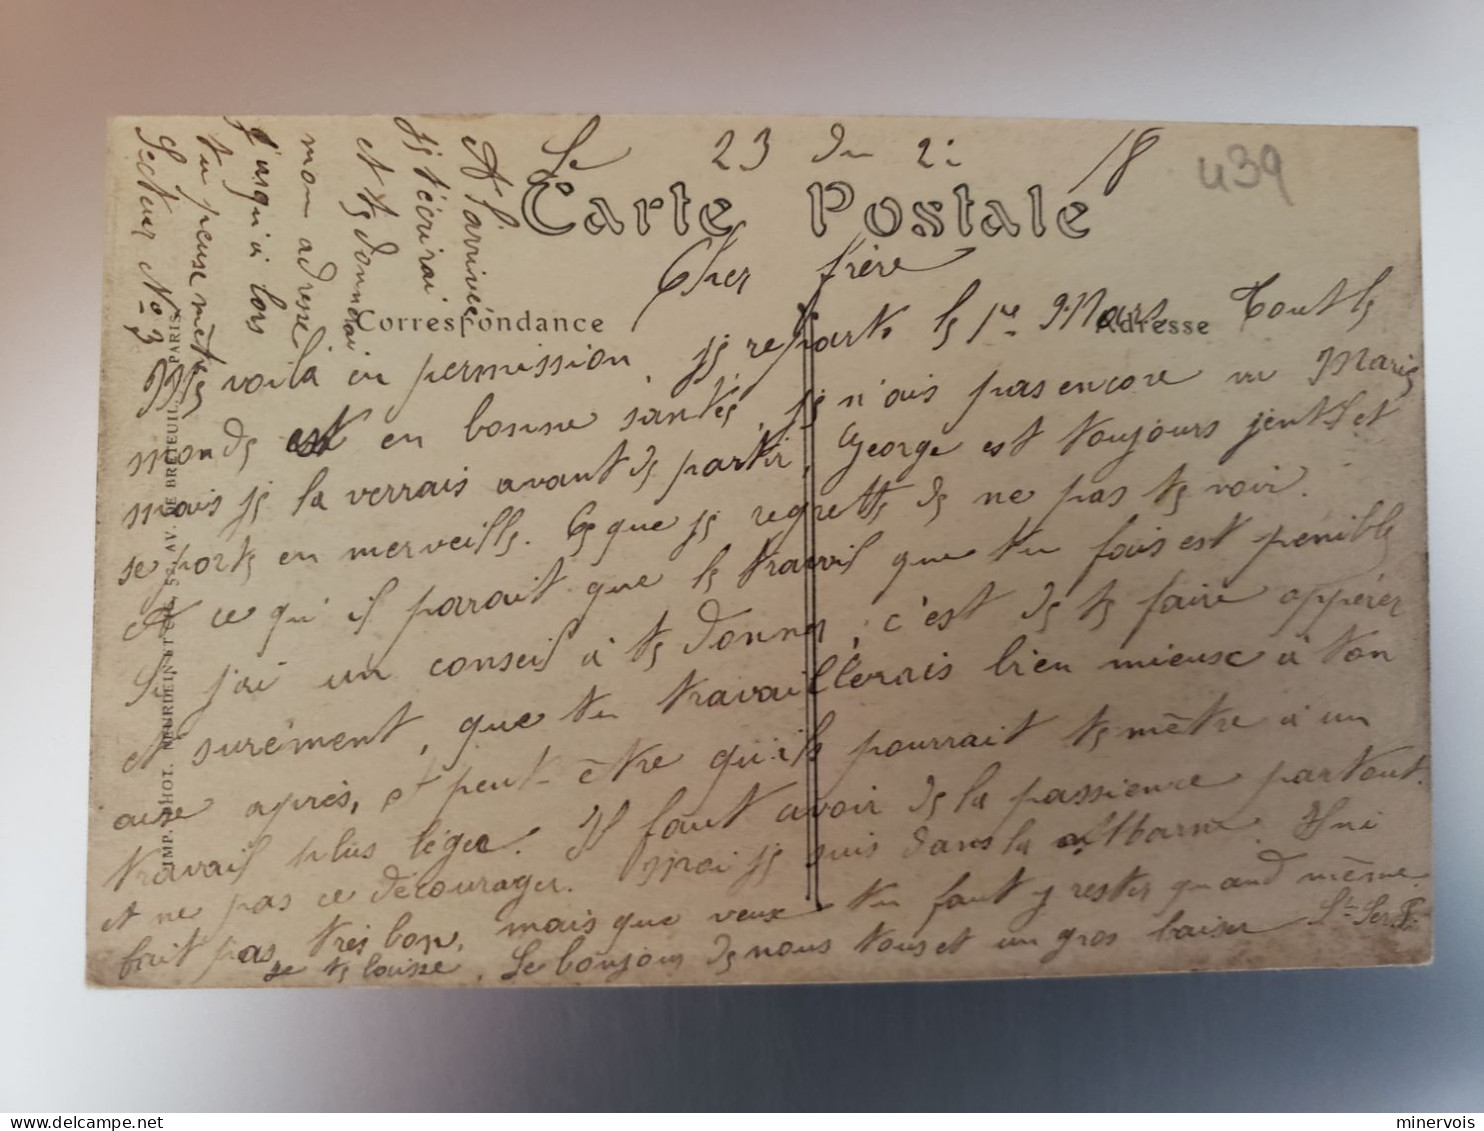 Le 23 du 2: 18
439
Carte Postale
Cher frère
Correspondance
Adresse
Me voilà en permission, je reparts le 1re Mars Tout le
monde est en bonne santé, je n'ais pas encore vu Marie
mais je la verrais avant de partir, George est toujours jentil et
se porte en merveille. Ce que je regrette de ne pas te voir.
A ce qu'il parait que le travail que tu fais est pénible
Si j'ai un conseil à te donner, c'est de te faire oppérer
et surement, que tu travaillerais bien mieux à ton
aise après, et peut-être qu'ils pourrait te mètre à un
travail plus léger. Il faut avoir de la passience partout.
et ne pas ce décourager. Moi je suis dans la Marne. Il ni
fait pas très bon, mais que veux tu faut y rester quand même.
Je te laisse. Le bonjour de nous tous et un gros baiser
A l'arrivée
je t'écrirai
et te donnerai
mon adresse
Jusqu'à lors
tu peuse mètre
Secteur No 3
IMP. PHOT. NEURDEIN ET CIE, 52, AV. DE BRETEUIL, PARIS
minervois